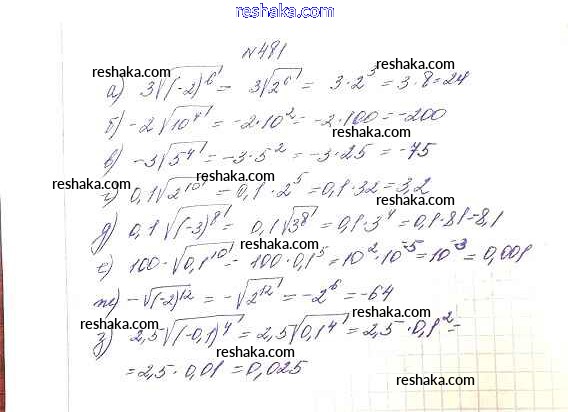 reshaka.com
№481
reshaka.com
а) 3√(-2)^6 = 3√2^6 = 3·2^3 = 3·8=24
reshaka.com
б) -2√10^4 = -2·10^2 = -2·100 = -200
reshaka.com
в) -3√5^4 = -3·5^2 = -3·25 = -75
reshaka.com
г) 0,1√2^10 = 0,1·2^5 = 0,1·32 = 3,2
reshaka.com
д) 0,1√(-3)^8 = 0,1√3^8 = 0,1·3^4 = 0,1·81=8,1
reshaka.com
е) 100·√0,1^10 = 100·0,1^5 = 10^2·10^-5 = 10^-3 = 0,001
reshaka.com
ж) -√(-2)^12 = -√2^12 = -2^6 = -64
reshaka.com reshaka.com
з) 2,5√(-0,1)^4 = 2,5√0,1^4 = 2,5·0,1^2 =
reshaka.com
= 2,5·0,01 = 0,025
reshaka.com